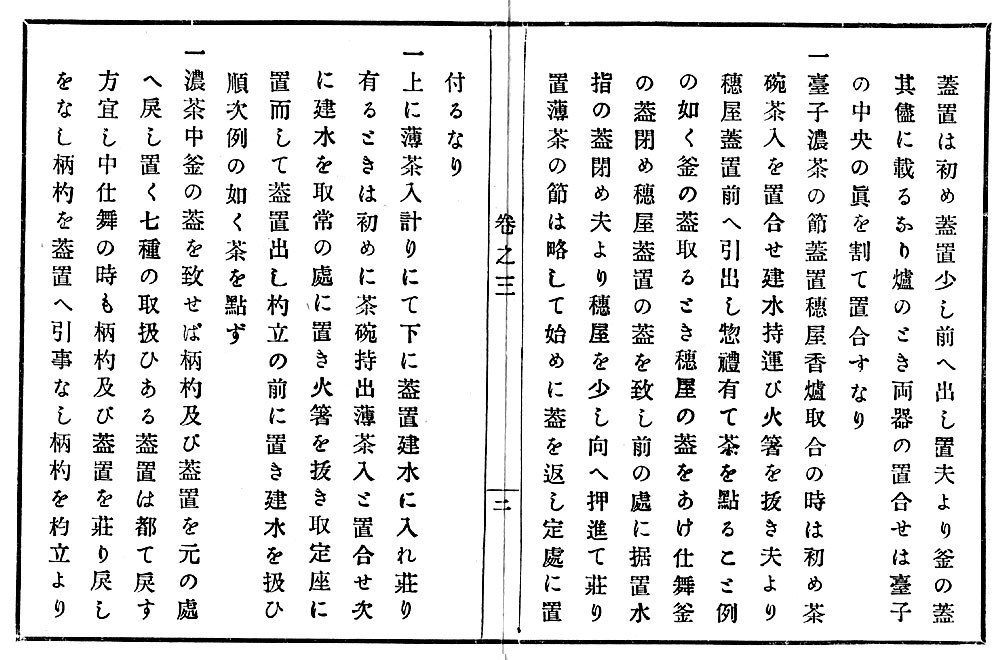 蓋置は初め蓋置少し前へ出し置夫より釜の蓋
其儘に載るなり爐のとき両器の置合せは臺子
の中央の眞を割て置合すなり
一臺子濃茶の節蓋置穗屋香爐取合の時は初め茶
碗茶入を置合せ建水持運び火箸を抜き夫より
穗屋蓋置前へ引出し惣禮有て茶を點ること例
の如く釜の蓋取るとき穗屋の蓋をあけ仕舞釜
の蓋閉め穗屋蓋置の蓋を致し前の處に据置水
指の蓋閉め夫より穗屋を少し向へ押進て莊り
置薄茶の節は略して始めに蓋を返し定處に置
卷之三
二
付るなり
一上に薄茶入計りにて下に蓋置建水に入れ莊り
有るときは初めに茶碗持出薄茶入と置合せ次
に建水を取常の處に置き火箸を抜き取定座に
置而して蓋置出し杓立の前に置き建水を扱ひ
順次例の如く茶を點ず
一濃茶中釜の蓋を致せば柄杓及び蓋置を元の處
へ戻し置く七種の取扱ひある蓋置は都て戻す
方宜し中仕舞の時も柄杓及び蓋置を莊り戻し
をなし柄杓を蓋置へ引事なし柄杓を杓立より